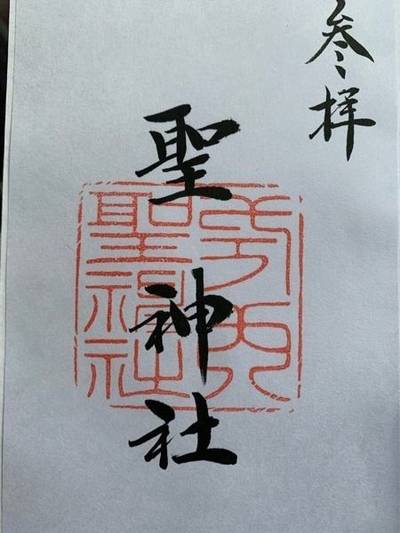 参拝
聖神社
聖神社